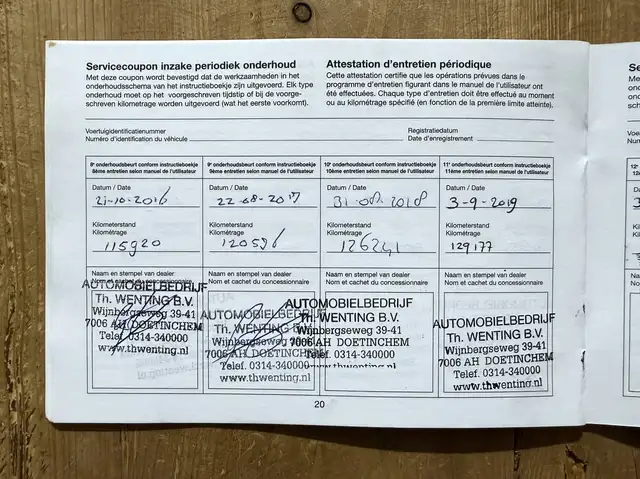 Servicecoupon inzake periodiek onderhoud
Met deze coupon wordt bevestigd dat de werkzaamheden in het
onderhoudsschema van het instructieboekje zijn uitgevoerd. Elk type
onderhoud moet op het voorgeschreven tijdstip of bij de voorge-
schreven kilometrage worden uitgevoerd (wat het eerste voorkomt).
Attestation d'entretien périodique
Cette attestation certifie que les opérations prévues dans le
programme d'entretien figurant dans le manuel de l'utilisateur ont
été effectuées. Chaque type d'entretien doit être effectué au moment
ou au kilométrage spécifié (en fonction de la première limite atteinte).
Voertuigidentificatienummer
Numéro d'identification du véhicule
Registratiedatum
Date d'enregistrement
8e onderhoudsbeurt conform instructieboekje
8ème entretien selon manuel de l'utilisateur
Datum / Date
21-10-2016
Kilometerstand
Kilométrage
115920
Naam en stempel van dealer
Nom et cachet du concessionnaire
AUTOMOBIELBEDRIJF
Th. WENTING B.V.
Wijnbergseweg 39-41
7006 AH DOETINCHEM
Telef. 0314-340000
www.thwenting.nl
9e onderhoudsbeurt conform instructieboekje
9ème entretien selon manuel de l'utilisateur
Datum / Date
22-08-2017
Kilometerstand
Kilométrage
120596
Naam en stempel van dealer
Nom et cachet du concessionnaire
AUTOMOBIELBEDRIJF
Th. WENTING B.V.
Wijnbergseweg 39-41
7006 AH DOETINCHEM
Telef. 0314-340000
www.thwenting.nl
10e onderhoudsbeurt conform instructieboekje
10ème entretien selon manuel de l'utilisateur
Datum / Date
31-08-2018
Kilometerstand
Kilométrage
126241
Naam en stempel van dealer
Nom et cachet du concessionnaire
AUTOMOBIELBEDRIJF
Th. WENTING B.V.
Wijnbergseweg 39-41
7006 AH DOETINCHEM
Telef. 0314-340000
www.thwenting.nl
11e onderhoudsbeurt conform instructieboekje
11ème entretien selon manuel de l'utilisateur
Datum / Date
3-9-2019
Kilometerstand
Kilométrage
129177
Naam en stempel van dealer
Nom et cachet du concessionnaire
AUTOMOBIELBEDRIJF
Th. WENTING B.V.
Wijnbergseweg 39-41
7006 AH DOETINCHEM
Telef. 0314-340000
www.thwenting.nl
20